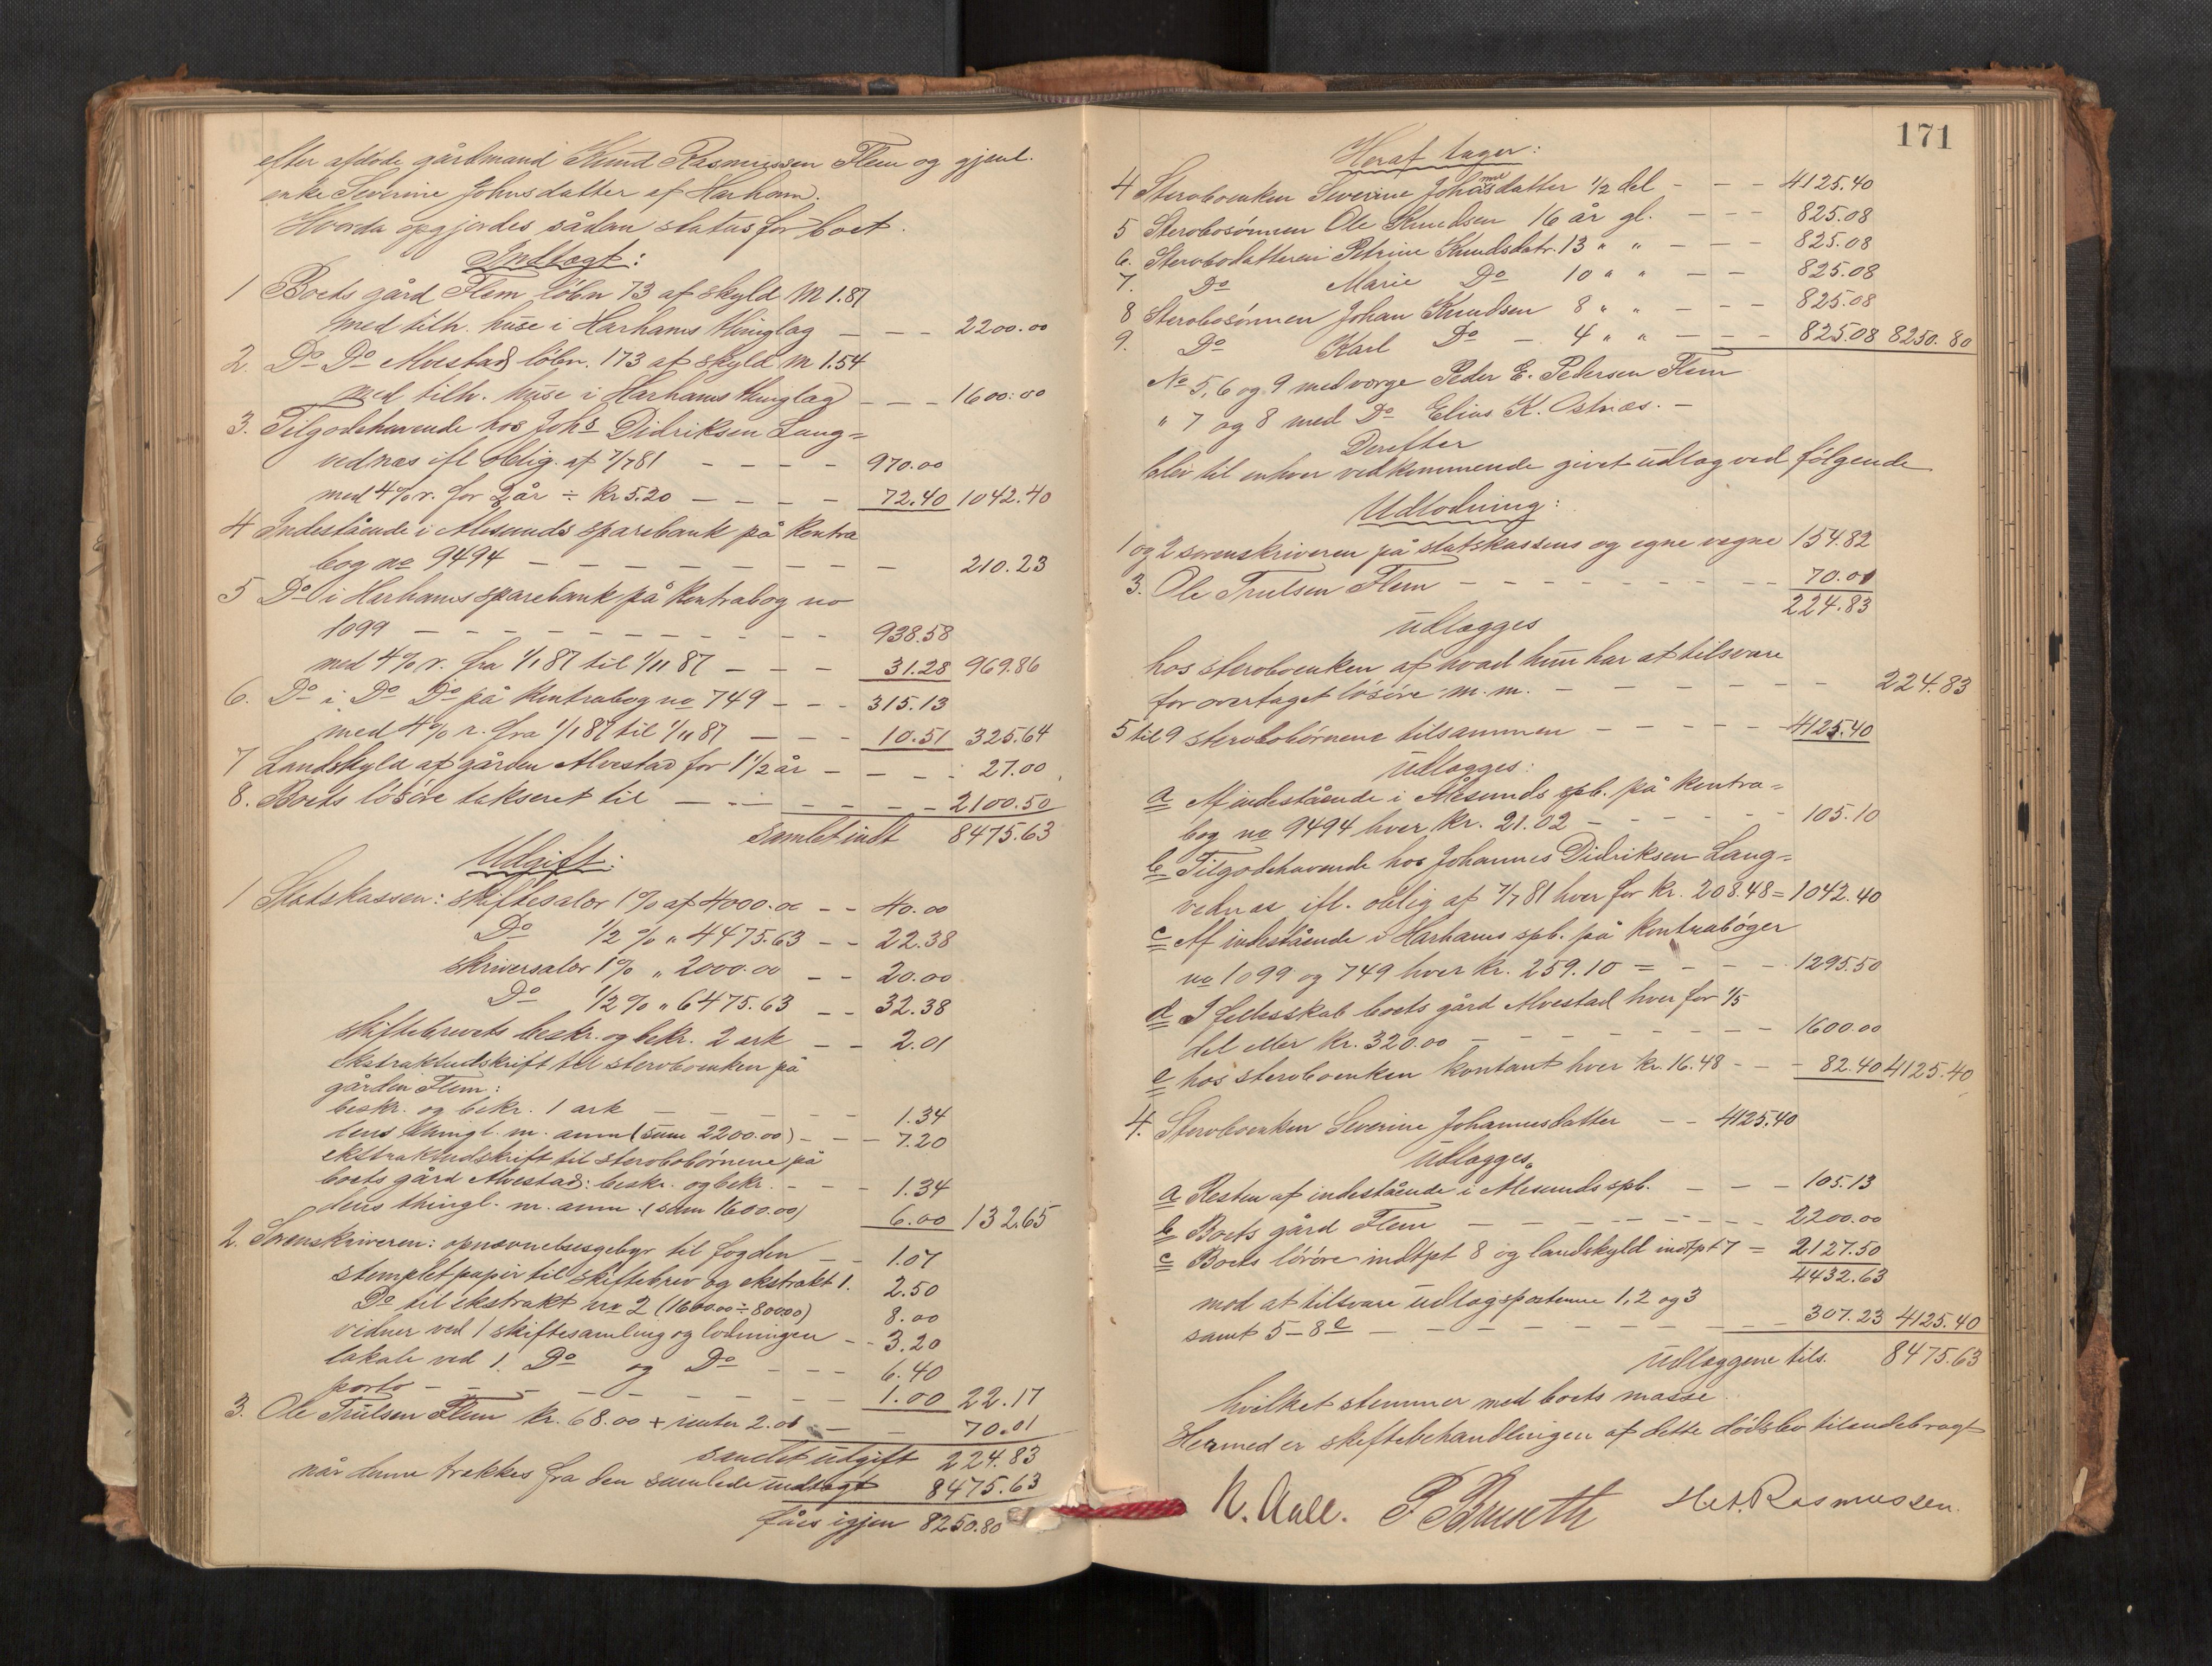 efter afdøde gårdmand Knud Rasmussen Flem og gjenl.
enke Severine Johnsdatter af Harham.
Hvorda opgjordes sådan status for boet.
Indtægt:
1 Boets gård Flem løbn 73 af skyld M 1.87
med tilh. huse i Harhams thinglag — — — 2200.00
2. Do Do Alvestad løbn. 173 af skyld M 1.54
med tilh. huse i Harhams thinglag — — — 1600.00
3. Tilgodehavende hos Johs Didriksen Lang=
vednæs ifl. oblig. af 7/7 81 — — — — 970.00
med 4% r. for 2 år ÷ kr 5.20 — — — — 72.40 1042.40
4 Indestående i Alesunds sparebank på kontra
bog no 9494 — — — — — — — — 210.23
5 Do i Harhams sparebank på kontrabog no
1099 — — — — — — — — — — 938.58
med 4% r. fra 1/1 87 til 1/11 87 — — — 31.28 969.86
6. Do i Do Do på kontrabog no 749 — — — 315.13
med 4% r. fra 1/1 87 til 1/11 87 — — — 10.51 325.64
7 Landskyld af gården Alvestad for 1 1/2 år — — — — 27.00
8. Boets løsøre takseret til — — — — — — — 2100.50
Samlet indt 8475.63
Udgift:
1 Statskassen: skiftesalær 1% af 4000.00 — — 40.00
Do 1/2 % " 4475.63 — — 22.38
skriversalær 1% " 2000.00 — — 20.00
Do 1/2 % " 6475.63 — — 32.38
skiftebrevets beskr. og bekr. 2 ark — — 2.01
ekstraktudskrift til sterboenken på
gården Flem:
beskr. og bekr. 1 ark — — — — — 1.34
dens thingl. m. anm (sum 2200.00) — — — 7.20
ekstraktudskrift til sterbobørnene på
boets gård Alvestad: beskr. og bekr. — — — 1.34
dens thingl. m. anm. (sum 1600.00) 6.00 132.65
2. Sorenskriveren: opnævnelsesgebyr til fogden — — 1.07
stemplet papir til skiftebrev og ekstrakt 1. 2.50
Do til ekstrakt no 2 (1600.00 ÷ 800.00) 8.00
vidner ved 1 skiftesamling og lodningen — — 3.20
lokale ved 1. Do og Do — — — 6.40
porto — — — — — — — — — 1.00 22.17
3. Ole Trulsen Flem kr. 68.00 + renter 2.01 — — 70.01
samlet udgift 224.83
når denne trækkes fra den samlede indtægt 8475.63
fåes igjen 8250.80
171
Heraf tager:
4 Sterboenken Severine Johannesdatter 1/2 del — — — 4125.40
5 Sterbosønnen Ole Knudsen 16 år gl. — — — 825.08
6. Sterbodatteren Petrine Knudsdatr. 13 " " — — — 825.08
7. Do Marie Do 10 " " — — 825.08
8 Sterbosønnen Johan Knudsen 8 " " — — — 825.08
9. Do Karl Do — 4 " " — — — 825.08 8250.80
No 5, 6 og 9 med værge Peder E. Pedersen Flem
" 7 og 8 med Do Elias K. Ostnæs. —
Derefter
blev til enhver vedkommende givet udlæg ved følgende
Udlodning:
1 og 2 sorenskriveren på statskassens og egne vegne 154.82
3. Ole Trulsen Flem — — — — — — — — 70.01
224.83
udlægges
hos sterboenken af hvad hun har at tilsvare
for overtaget løsøre m. m. — — — — — — — 224.83
5 til 9 sterbobørnene tilsammen — — — — — 4125.40
udlægges:
a Af indestående i Ålesunds spb. på kontra=
bog no 9494 hver kr. 21.02 — — — — — 105.10
b Tilgodehavende hos Johannes Didriksen Lang=
vednæs ifl. oblig af 7/7 81 hver for kr. 208.48 = 1042.40
c Af indestående i Harhams spb. på kontrabøger
no 1099 og 749 hver kr. 259.10 = — — — 1295.50
d I fellesskab boets gård Alvestad hver for 1/5
del eller kr. 320.00 — — — — — — — — 1600.00
e hos sterboenken kontant hver kr. 16.48 — — — 82.40 4125.40
4. Sterboenken Severine Johannesdatter — — 4125.40
udlægges
a Resten af indestående i Alesunds spb. — — — 105.13
b Boets gård Flem — — — — — — — — 2200.00
c Boets løsøre indtpt 8 og landskyld indtpt 7 = 2127.50
4432.63
mod at tilsvare udlægsposterne 1, 2 og 3
samt 5–8 e — — — — — — — — — 307.23 4125.40
udlæggene tils. 8475.63
hvilket stemmer med boets masse.
Hermed er skiftebehandlingen af dette dødsbo tilendebragt
N. Aall. P Bruseth Het. Rasmussen.